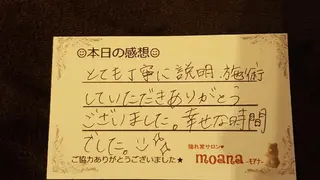 ☺本日の感想☺
とても丁寧に説明、施術
していただきありがとう
ございました。幸せな時間
でした。
ご協力ありがとうございました★
隠れ家サロン♥
moana -モアナ-